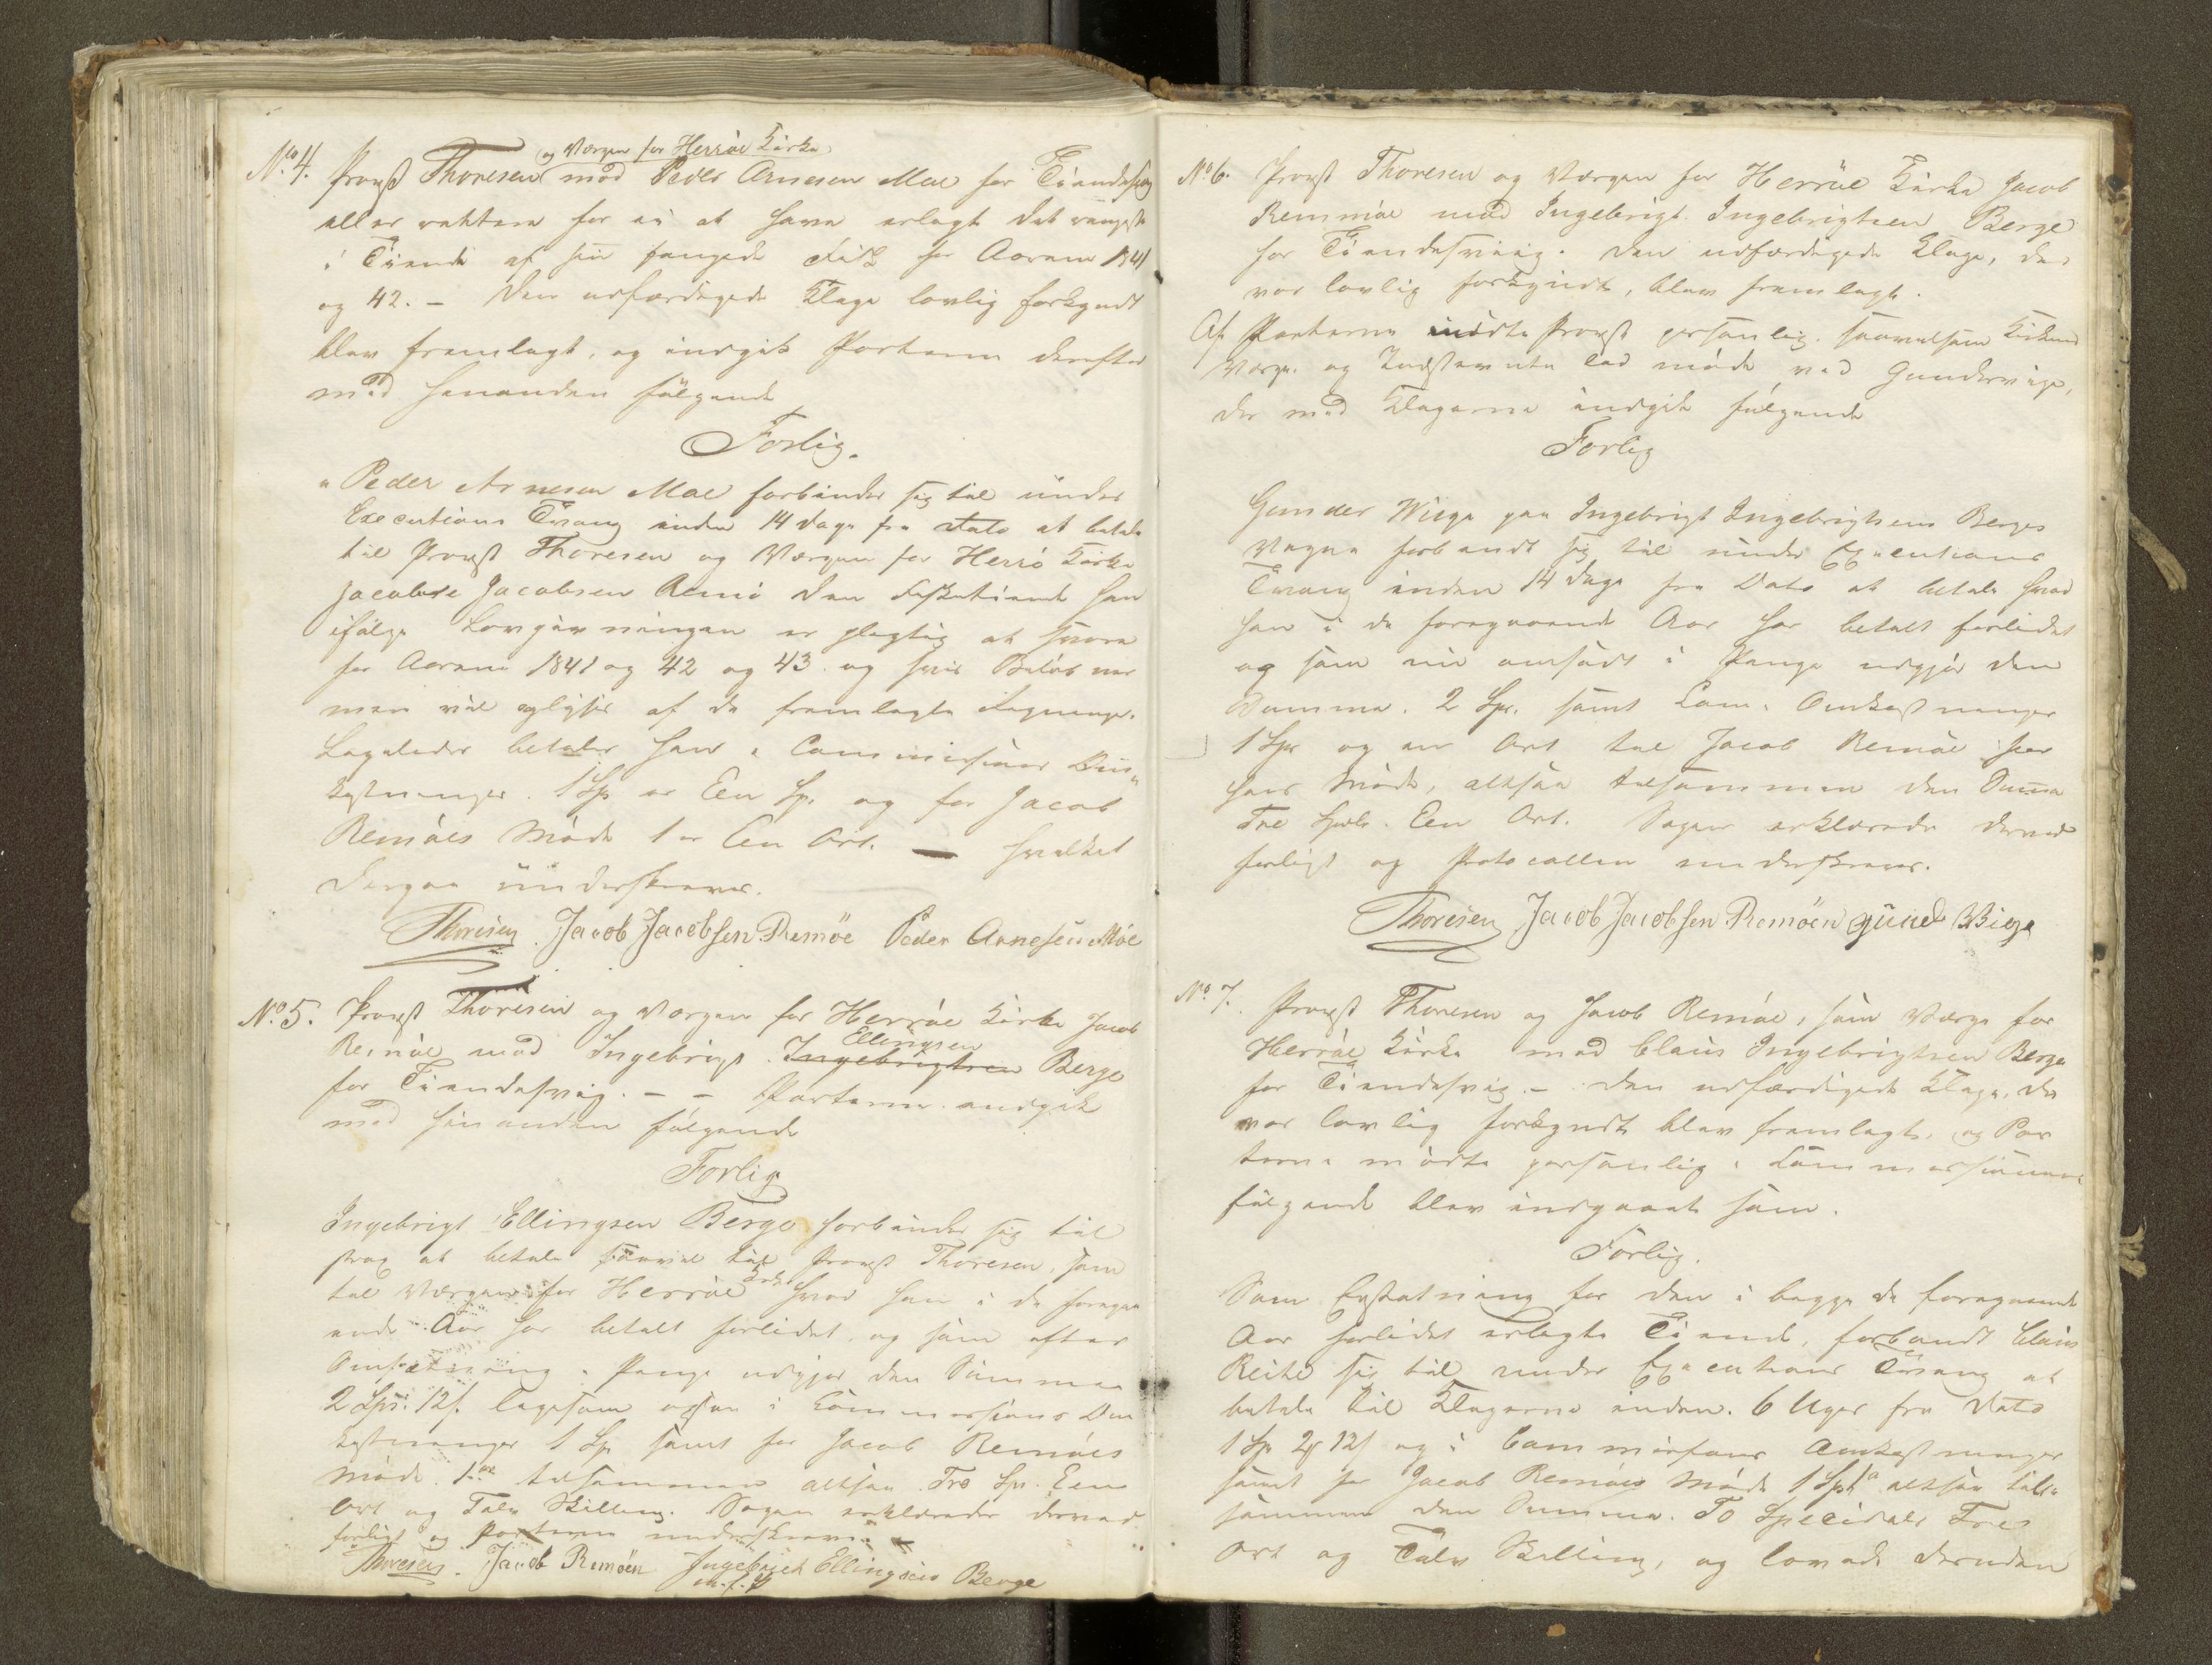 og Værgen for Herröe Kirke
No. 4. Provst Thoresen mod Peder Arnesen Moe for Tiendesvig
eller rettere for ei at have erlagt det
i Tiende af sin fangede Fisk for Aarene 1841
og 42. – Den udfærdigede Klage lovlig forkyndt
blev fremlagt, og indgik Parterne derefter
med hinanden følgende
Forlig.
"Peder Arnesen Moe forbinder sig til under
Executions Tvang inden 14 dage fra Dato at betale
til Provst Thoresen og Værgen for Herrö Kirke
Jacob Jacobsen Remö den Fisketiende han
ifølge Lovgivningen er pligtig at svare
for Aarene 1841 og 42 og 43 og hvis Beløb nær
mere vil oplyses af de fremlagte Regninger.
Ligeledes betaler han i Commissions Om
kostninger 1 Sp er Een Sp. og for Jacob
Remöes Møde 1 er Een Ort. — hvilket
Derpaa underskreves.
Thoresen. Jacob Jacobsen Remöe Peder Arnesen Moe
No. 5. Provst Thoresen og Værgen for Herröe Kirke Jacob
Remöe mod Ingebrigt Ingebrigtsen Ellingsen Berge
for Tiendesvig. – – Parterne indgik
med hinanden følgende
Forlig
Ingebrigt Ellingsen Berge forbinder sig til
strax at betale saavel til Provst Thoresen, som
til Værgen for Herröe Kirke hvad han i de foregaa
ende Aar har betalt forlidet og som efter
Omsætning i Penge udgjør den Summa
2 Spr. 12 s. ligesom ogsaa i Commissions Om
kostninger 1 Sp. samt for Jacob Remöes
Møde 1 ort tilsammen altsaa Tre Sp. Een
Ort og Tolv Skilling. Sagen erklæredes derved
forligt og Parterne underskrev.
Thoresen. Jacob Remöen Ingebrigt Ellingsen Berge
m. f. P.
No. 6. Provst Thoresen og Værgen for Herröe Kirke Jacob
Remöe mod Ingebrigt Ingebrigtsen Berge
for Tiendesvig. Den udfærdigede Klage, der
var lovlig forkyndt, blev fremlagt.
Af Parterne mødte Provst personlig saavelsom Kirkens
Værge og Indstevnte lod møde ved Gunder Vige,
der med Klagerne indgik følgende
Forlig
Gunder Wiege paa Ingebrigt Ingebrigtsens Berges
Vegne forbandt sig til under Executions
Tvang inden 14 dage fra Dato at betale hvad
han i de foregaaende Aar har betalt forlidet
og som nu omsat i Penge udgjør den
Summa 2 Spr. samt Com. Omkostninger
1 Sp og en Ort til Jacob Remöe for
hans Møde, altsaa tilsammen den Summa
Tre Spdlr. Een Ort. Sagen erklæredes derved
forligt og Protocollen underskreves.
Thoresen Jacob Jacobsen Remöen Gunder Wige
No. 7. Provst Thoresen og Jacob Remöe, som Værge for
Herröe Kirke mod Claus Ingebrigtsen Berge
for Tiendesvig. – Den udfærdigede Klage, der
var lovlig forkyndt blev fremlagt, og Par
terne mødte personlig i Commissionen
følgende blev indgaaet som.
Forlig.
Som Erstatning for den i begge de foregaaende
Aar forlidet erlagte Tiende, forbandt Claus
Reite sig til under Executions Tvang at
betale til Klagerne inden 6 Uger fra Dato
1 Sp 2 12 s og i Commissions Omkostninger
samt for Jacob Remöes Møde 1 Sp 1 altsaa til
sammen den Summa To Speciedaler Tre
Ort og Tolv Skilling, og lovede desuden